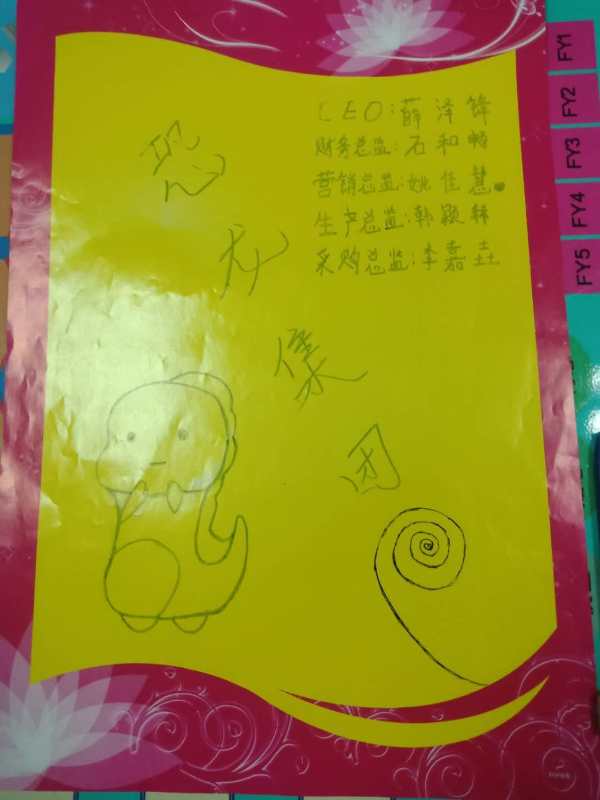 恐龙集团
CEO:薛泽锋
财务总监:石和畅
营销总监:姚佳慧
生产总监:韩颖林
采购总监:李嘉垚
FY1
FY2
FY3
FY4
FY5